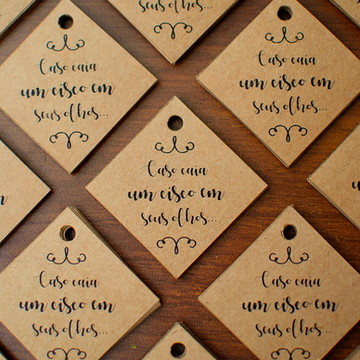 seus olhos...
Caso caia
um cisco em
seus olhos...
Caso caia
um cisco em
seus olhos...
Caso caia
um cisco em
seus olhos...
Caso caia
um cisco em
seus olhos...
Caso caia
um cisco em
seus olhos...